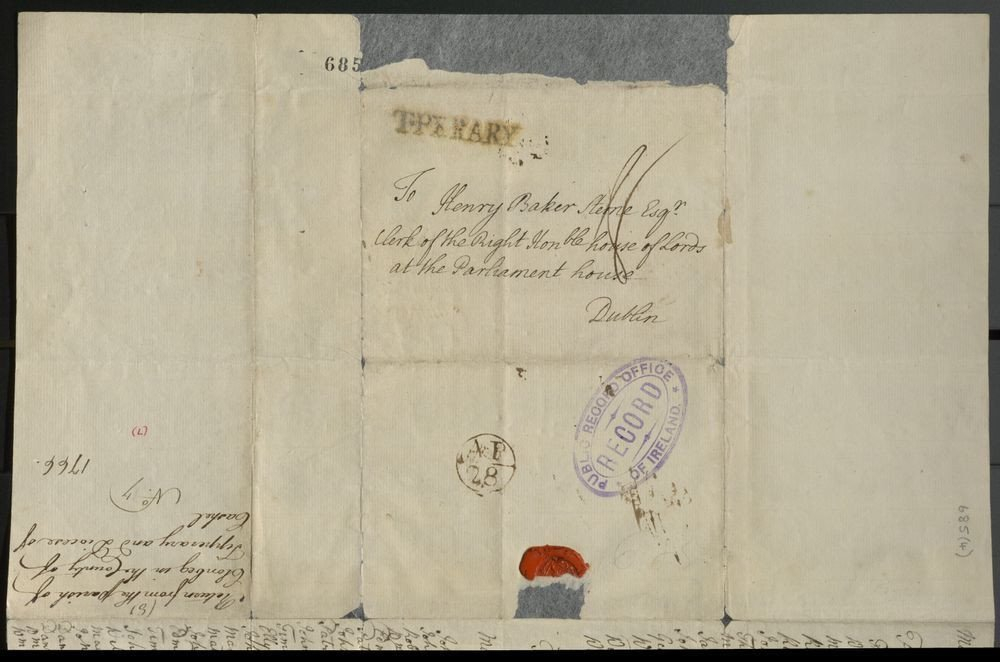 685
T·PERARY
To Henry Baker Sterne Esqr.
Clerk of the Right Honble house of Lords
at the Parliament house
Dublin
AP
28
PUBLIC RECORD OFFICE
RECORD
OF IRELAND.
(7)
685(4)
(8)
Return from the Parish of
Clonbeg in the County of
Tipperary and Diocese of
Cashel
No. 7
1766.